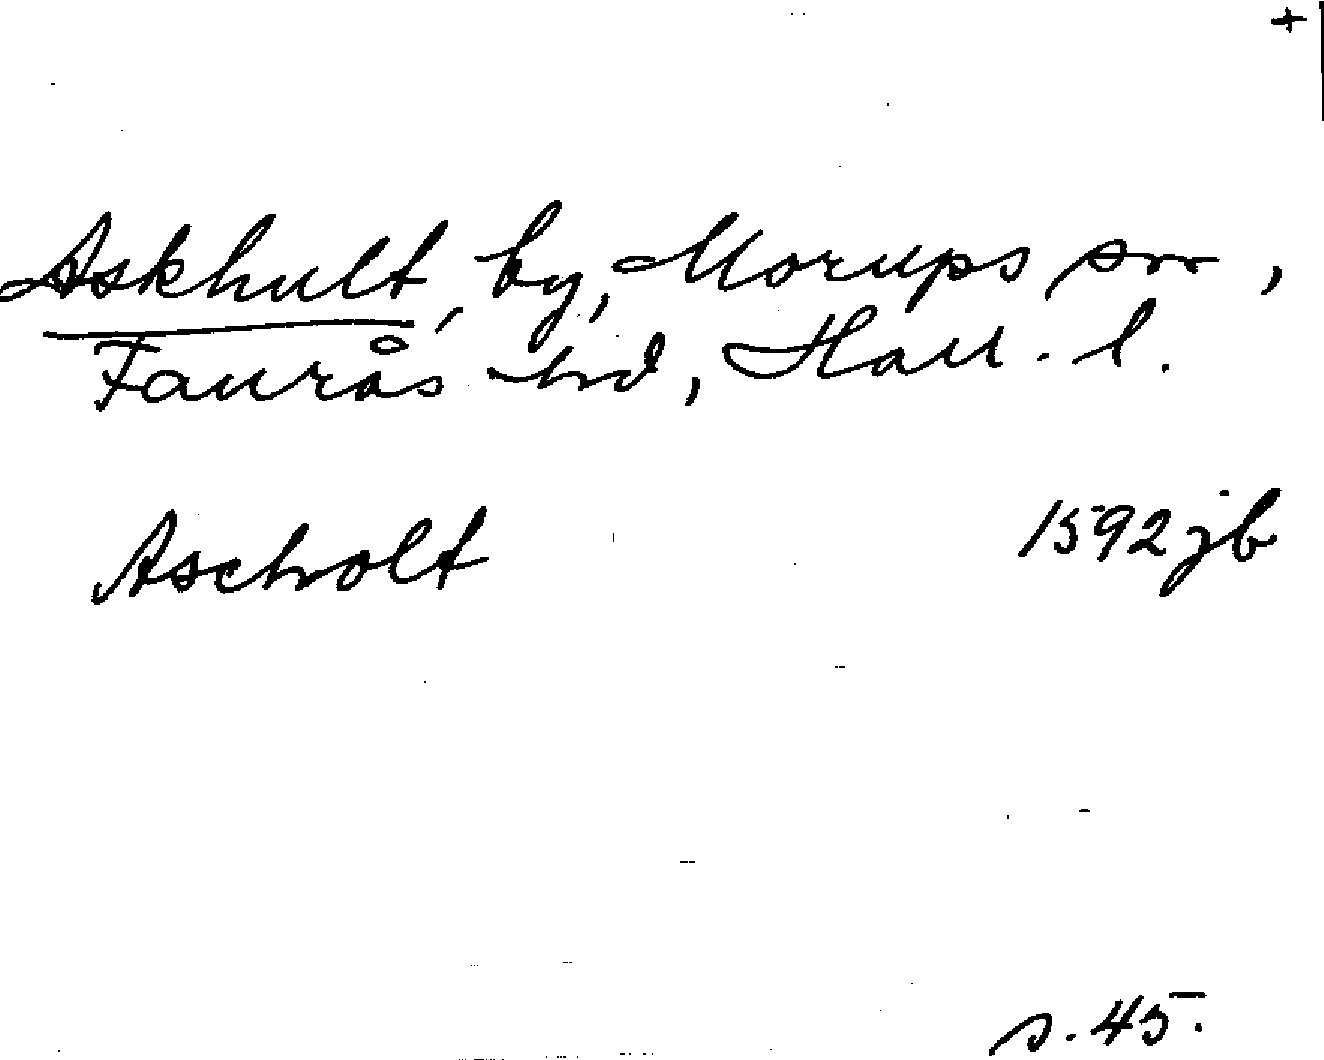 +
Askhult, by, Morups sn,
Faurås hd, Hall. l.
Ascholt 1592 jb
s. 45.